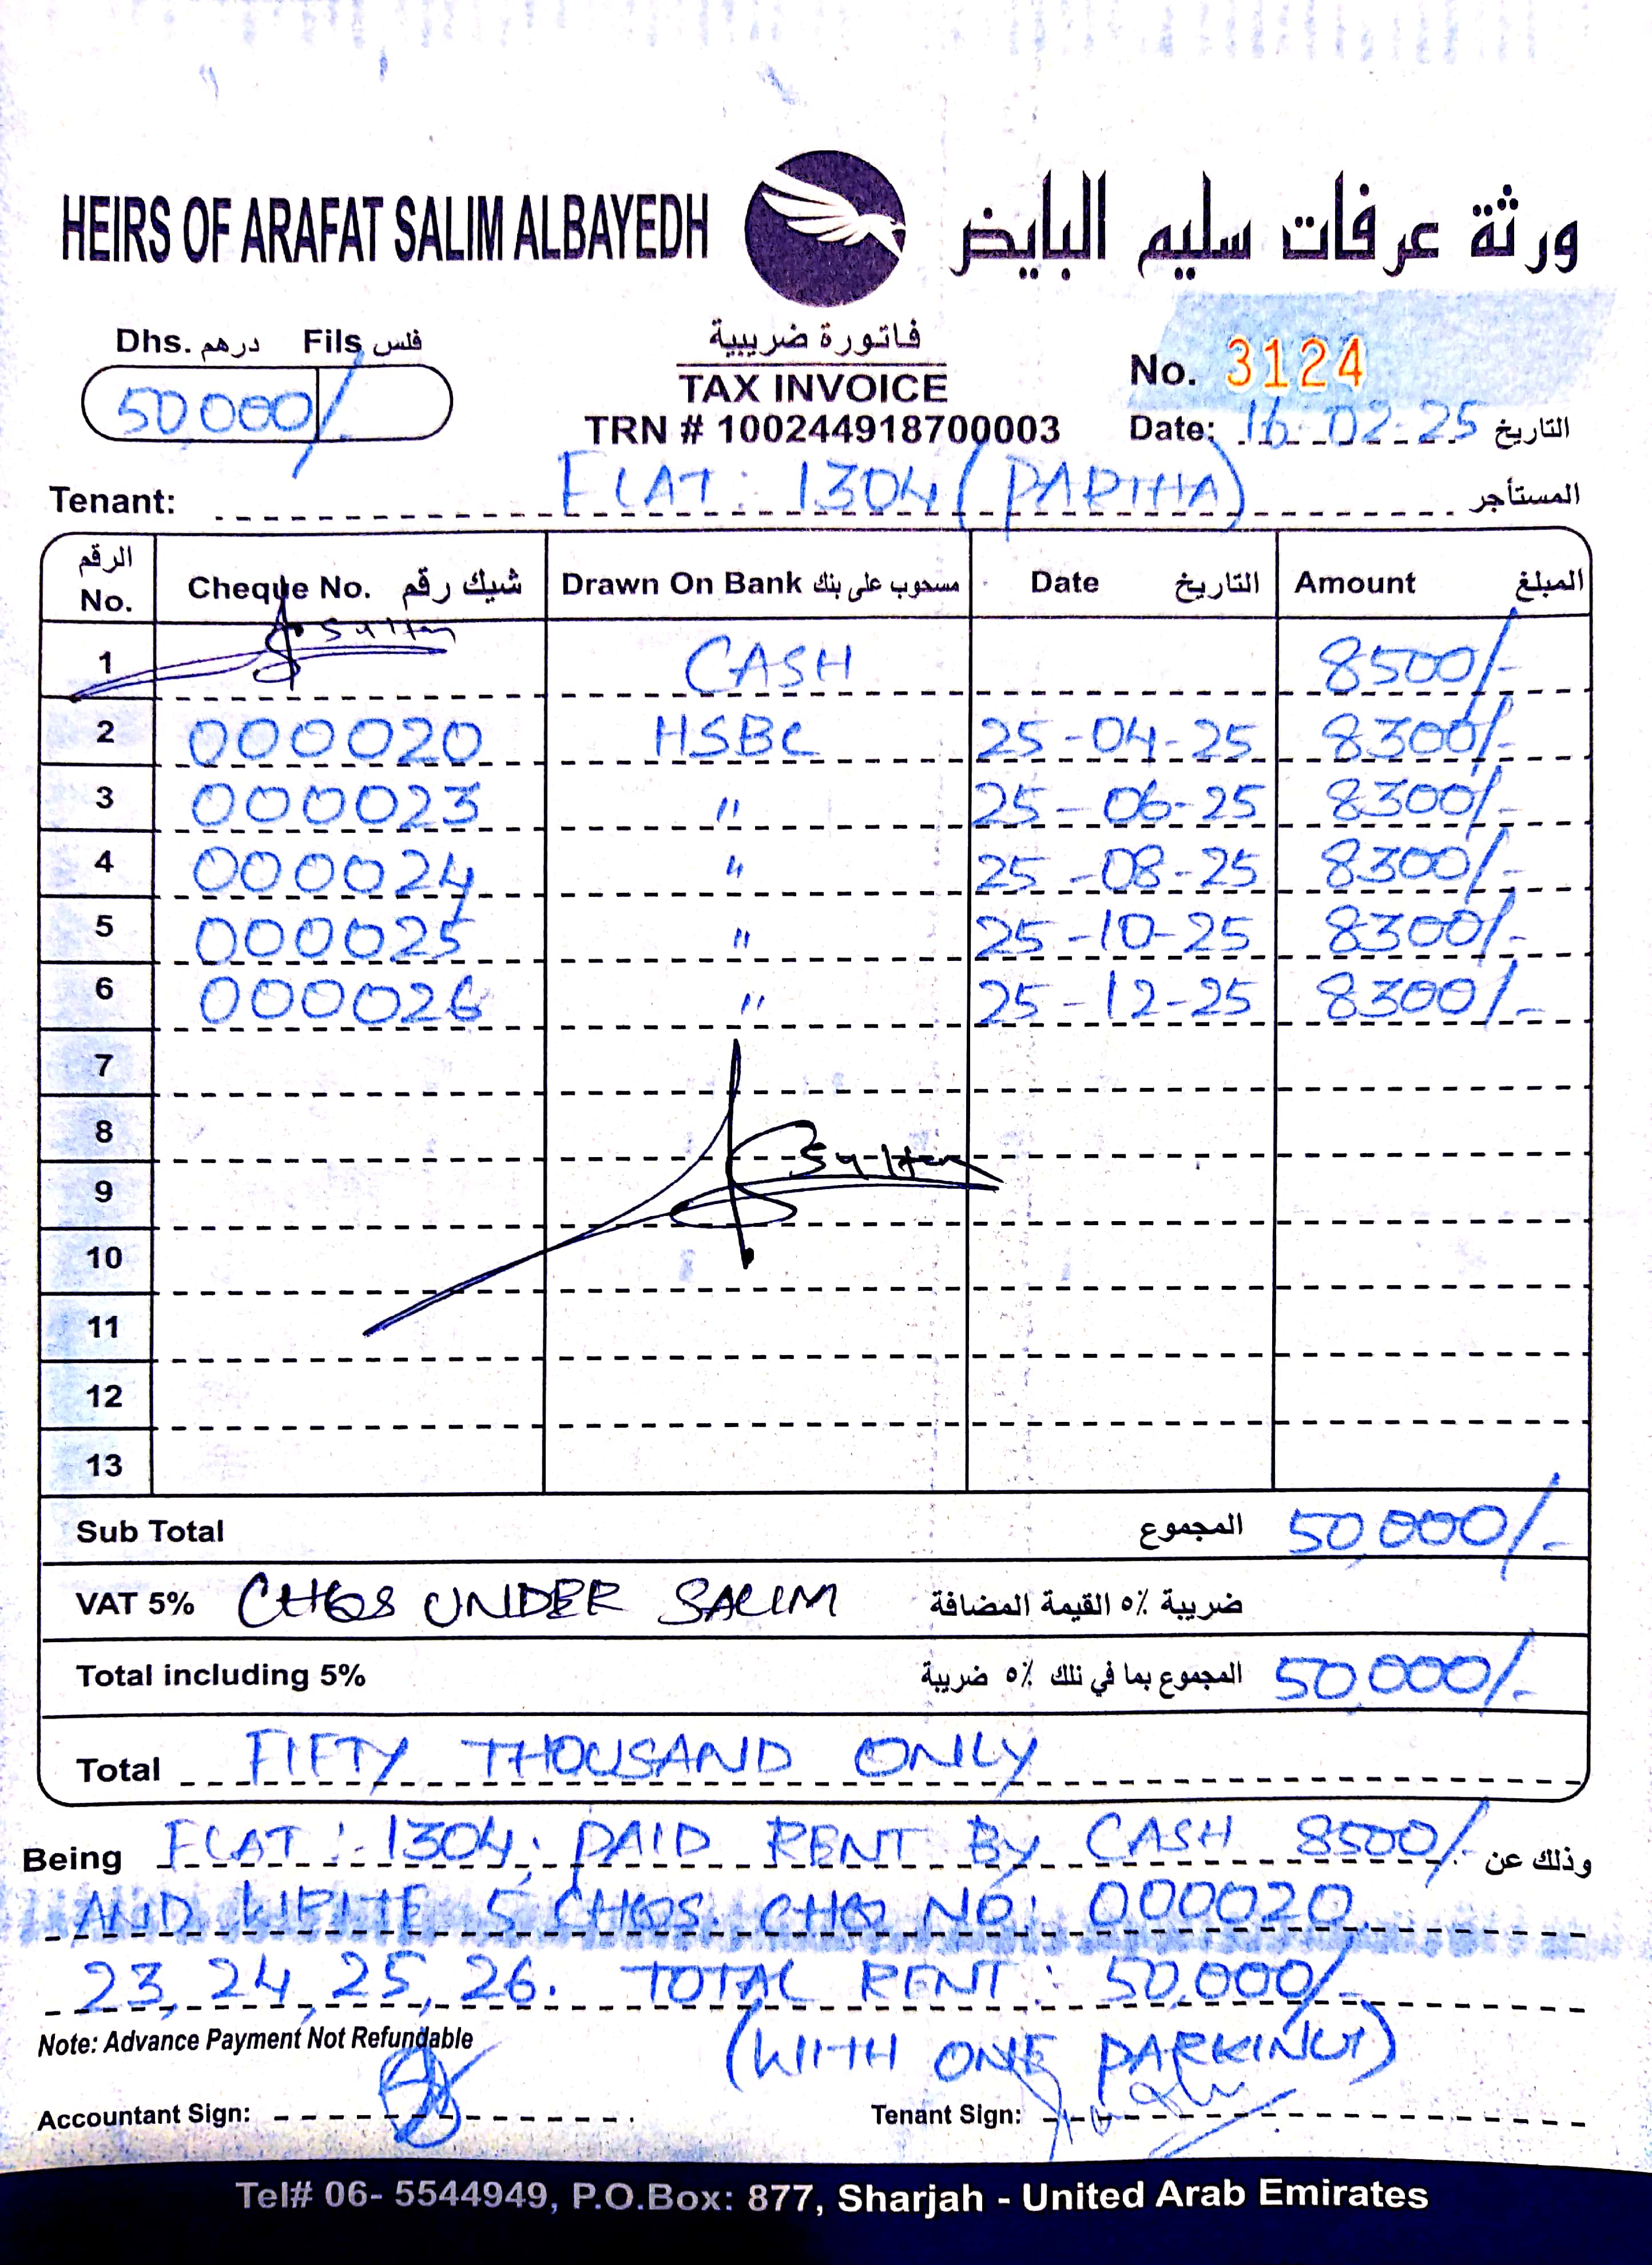 HEIRS OF ARAFAT SALIM ALBAYEDH ورثة عرفات سليم البايض
Dhs. درهم Fils فلس
50,000/-
فاتورة ضريبية
TAX INVOICE
TRN # 100244918700003
No. 3124
Date: 16-02-25 التاريخ
Tenant: FLAT: 1304 (PARTHA) المستأجر
الرقم No. Cheque No. شيك رقم Drawn On Bank مسحوب على بنك Date التاريخ Amount المبلغ
Sultan
1 CASH 8500/-
2 000020 HSBC 25-04-25 8300/-
3 000023 " 25-06-25 8300/-
4 000024 " 25-08-25 8300/-
5 000025 " 25-10-25 8300/-
6 000026 " 25-12-25 8300/-
7
8
Sultan
9
10
11
12
13
Sub Total المجموع 50,000/-
VAT 5% CHQS UNDER SALIM ضريبة ٥٪ القيمة المضافة
Total including 5% المجموع بما في ذلك ٥٪ ضريبة 50,000/-
Total FIFTY THOUSAND ONLY
Being FLAT: 1304, PAID RENT BY CASH 8500/- وذلك عن
AND 5 CHQS. CHQ NO: 000020,
23, 24, 25, 26. TOTAL RENT: 50,000/-
(WITH ONE PARKING)
Note: Advance Payment Not Refundable
Accountant Sign:
Tenant Sign:
Tel# 06- 5544949, P.O.Box: 877, Sharjah - United Arab Emirates